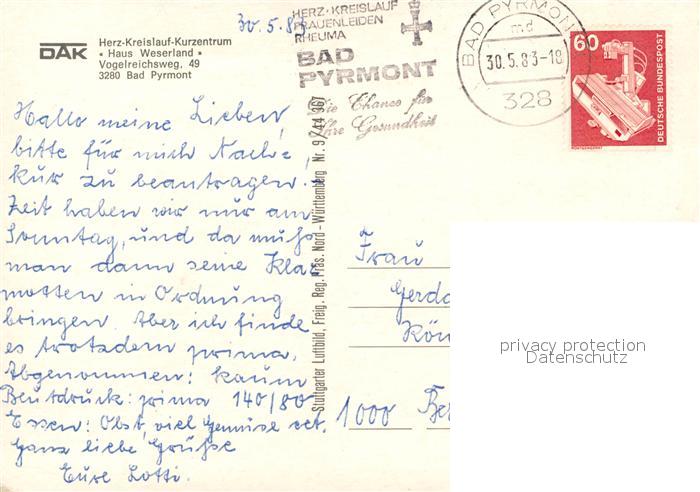 30.5.83
DAK
Herz-Kreislauf-Kurzentrum
• Haus Weserland •
Vogelreichsweg, 49
3280 Bad Pyrmont
HERZ-KREISLAUF
FRAUENLEIDEN
RHEUMA
BAD
PYRMONT
Die Chance für
Ihre Gesundheit
BAD PYRMONT
md
30.5.83-18
328
60
DEUTSCHE BUNDESPOST
RÖNTGENGERÄT
Hallo meine Lieben,
bitte für mich Nach-
kur zu beantragen.
Zeit haben wir nur am
Sonntag, und da muß
man dann seine Kla-
motten in Ordnung
bringen. Aber ich finde
es trotzdem prima.
Abgenommen: kaum
Blutdruck: prima 140/80
Essen: Obst, viel Gemüse etc.
Ganz liebe Grüße
Eure Lotti.
Stuttgarter Luftbild, Freig. Reg. Präs. Nord-Württemberg Nr. 9/44 367
Frau
Gerda
Kön
1000 Be
privacy protection
Datenschutz